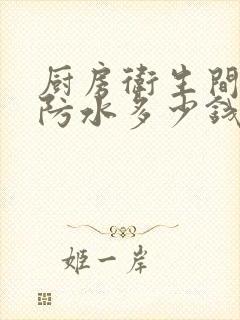 厨房衛生間
防水多少钱
姬一岸